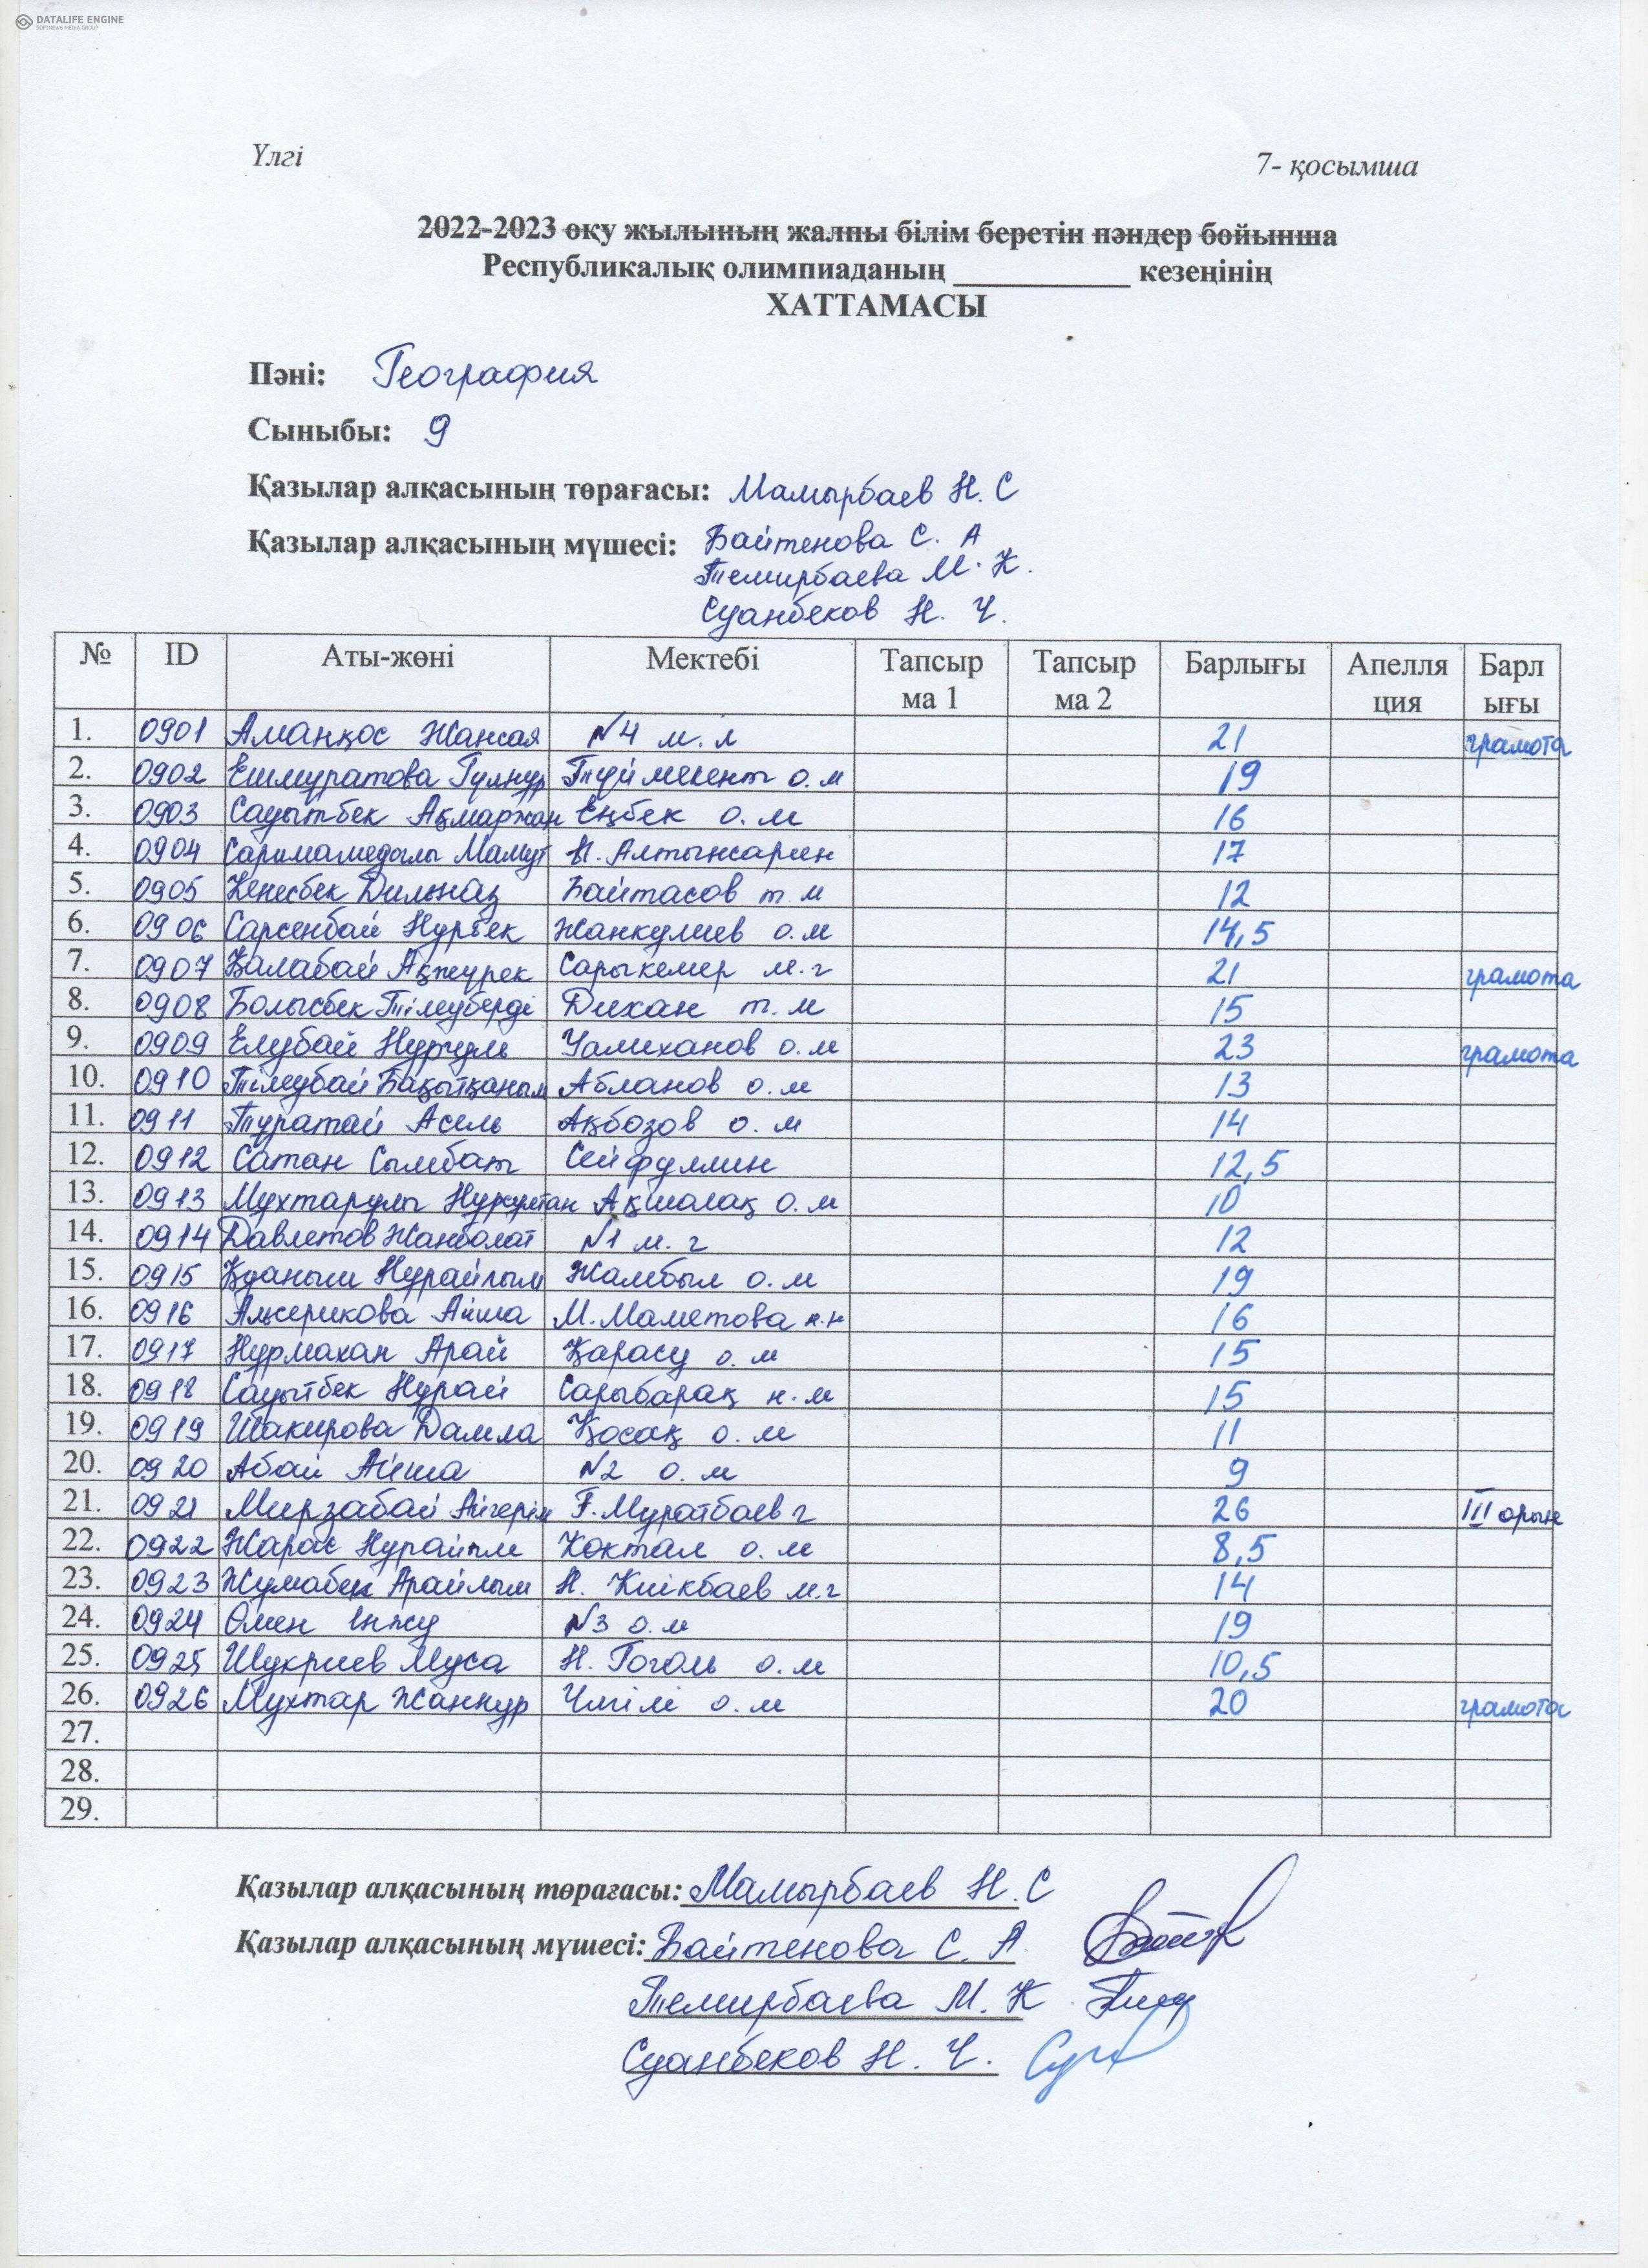 DATALIFE ENGINE
SOFTNEWS MEDIA GROUP
Үлгі 7- қосымша
2022-2023 оқу жылының жалпы білім беретін пәндер бойынша
Республикалық олимпиаданың ___________ кезеңінің
ХАТТАМАСЫ
Пәні: География
Сыныбы: 9
Қазылар алқасының төрағасы: Мамырбаев Н. С
Қазылар алқасының мүшесі: Байтенова С. А
Темирбаева М. К.
Суанбеков Н. Ч.
№ ID Аты-жөні Мектебі Тапсыр ма 1 Тапсыр ма 2 Барлығы Апелля ция Барл ығы
1. 0901 Аманқос Жансая №4 м. л 21 грамота
2. 0902 Ешмуратова Гулнур Түймекент о. м 19
3. 0903 Сауытбек Ақмаржан Еңбек о. м 16
4. 0904 Мамут Ы. Алтынсарин 17
5. 0905 Кенесбек Дильназ Байтасов т. м 12
6. 0906 Сарсенбай Нурбек Жанкулиев о. м 14,5
7. 0907 Қалабай Ақжүрек Сарыкемер м. г 21 грамота
8. 0908 Болысбек Тілеуберді Дихан т. м 15
9. 0909 Елубай Нұргуль Уалиханов о. м 23 грамота
10. 0910 Тілеубай Бақытқаным Абланов о. м 13
11. 0911 Тұратай Асель Ақбозов о. м 14
12. 0912 Сатан Сымбат Сейфуллин 12,5
13. 0913 Мухтарулы Нурсултан Ақшолақ о. м 10
14. 0914 Давлетов Жанболат №1 м. г 12
15. 0915 Қуаныш Нұрайлым Жамбыл о. м 19
16. 0916 Альсерикова Айша М. Маметова н. н 16
17. 0917 Нұрмахан Арай Қарасу о. м 15
18. 0918 Сауытбек Нұрай Сарыбарақ н. м 15
19. 0919 Шакирова Дамла Қосақ о. м 11
20. 0920 Абай Айша №2 о. м 9
21. 0921 Мирзабай Айгерім Ғ. Муратбаев г 26 III орын
22. 0922 Жарас Коктал о. м 8,5
23. 0923 Жумабек Арайлым Н. Киікбаев м. г 14
24. 0924 Өмен Інжу №3 о. м 19
25. 0925 Шукриев Муса Н. Гоголь о. м 10,5
26. 0926 Мухтар Жаннур Үлгілі о. м 20 грамота
27.
28.
29.
Қазылар алқасының төрағасы: Мамырбаев Н. С
Қазылар алқасының мүшесі: Байтенова С. А.
Темирбаева М. К
Суанбеков Н. Ч.